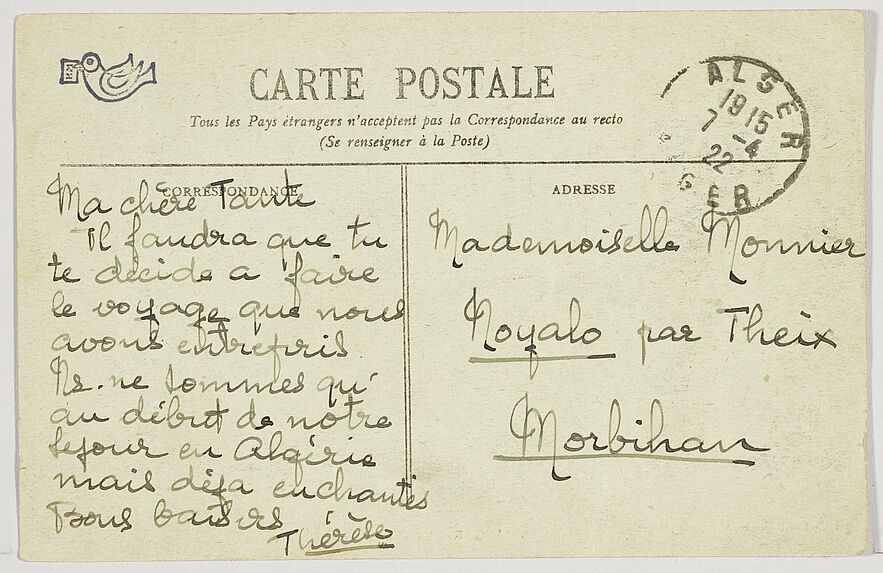 CARTE POSTALE
Tous les Pays étrangers n'acceptent pas la Correspondance au recto
(Se renseigner à la Poste)
ALGER
1915
7 -4
22
GER
CORRESPONDANCE
Ma chère Tante
Il faudra que tu
te décide a faire
le voyage que nous
avons entrepris
Ns. ne sommes qu'
au début de notre
séjour en Algérie
mais déja enchantés
Bons baisers
Thérèse
ADRESSE
Mademoiselle Monnier
Noyalo par Theix
Morbihan